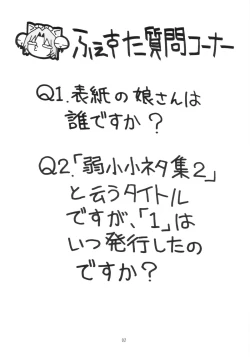 ふぇすた質問コーナー
Q1.表紙の娘さんは
誰ですか?
Q2.「弱小小ネタ集2」
と云うタイトル
ですが、「1」は
いつ発行したの
ですか?